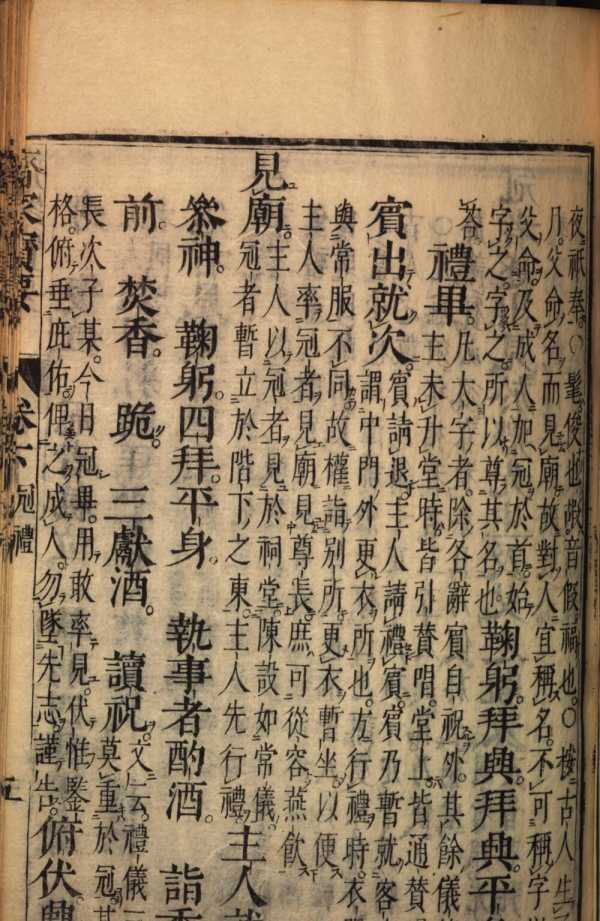 夜祗奉。○髦俊也嘏音假福也。○按古人生
月父命名而見廟故對人宜稱名不可稱字
父命及成人加冠於首始
字之字之所以尊其名也
鞠躬拜興拜興平
答
禮畢。
凡太字者除各辭賓自祝外其餘儀
主未升堂時皆引贊唱堂上皆通贊
賓出就次。
賓請退主人請禮賓賓乃暫就客
謂中門外更衣所也方行禮時衣
與常服不同故權詣別所更衣暫坐以便
主人率冠者見廟見尊長庶可從容燕飲
見廟。
主人以冠者見於祠堂陳設如常儀
冠者暫立於階下之東主人先行禮
主人
參神。 鞠躬四拜平身。 執事者酌酒。 詣
前。 焚香。 跪。 三獻酒。 讀祝。
文云禮儀三
莫重於冠某
長次子某。今日冠畢。用敢率見。伏惟鑒
格。俯垂庇佑。俾之成人。勿墜先志。謹告。
俯伏興
寶要
卷六 冠禮